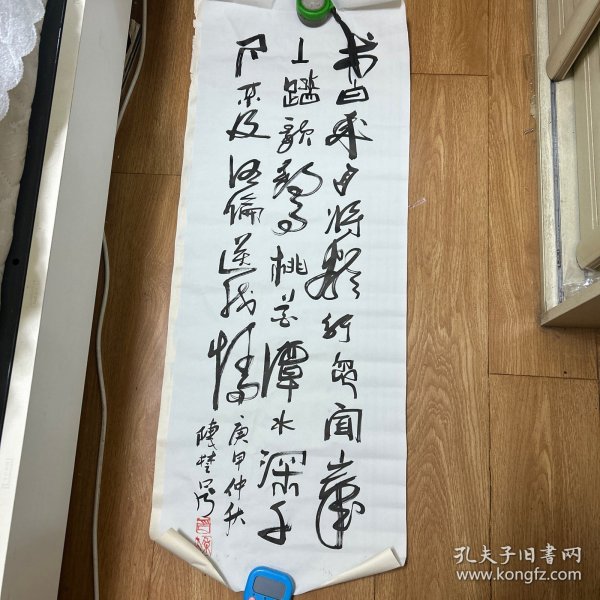 李白乘舟将欲行忽闻岸
上踏歌声桃花潭水深千
尺不及汪倫送我情
庚申仲秋
陳楚
孔夫子旧书网
www.kongfz.com